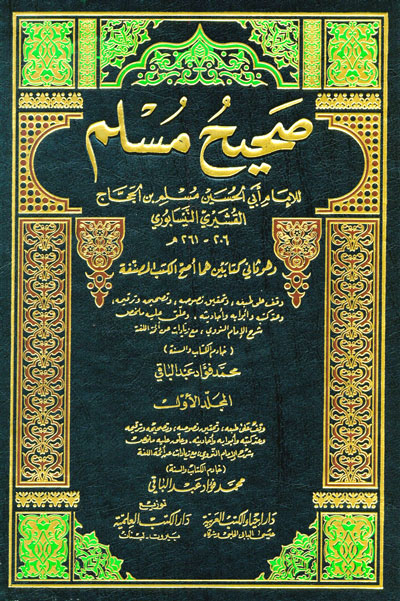 صحيح مسلم
للإمام أبي الحسين مسلم بن الحجاج
القشيري النيسابوري
٢٠٦ - ٢٦١ هـ
وهو ثاني كتابين هما أصح الكتب المصنفة
وقف على طبعه، وتحقيق نصوصه، وتصحيحه وترقيمه،
وعد كتبه وأبوابه وأحاديثه، وعلق عليه ملخص
شرح الإمام النووي، مع زيادات عن أئمة اللغة
(خادم الكتاب والسنة)
محمد فؤاد عبد الباقي
المجلد الأول
وقف على طبعه، وتحقيق نصوصه، وتصحيحه وترقيمه
وعد كتبه وأبوابه وأحاديثه، وعلق عليه ملخص
شرح الإمام النووي مع زيادات عن أئمة اللغة
(خادم الكتاب والسنة)
محمد فؤاد عبد الباقي
توزيع
دار إحياء الكتب العربية دار الكتب العلمية
عيسى البابي الحلبي وشركاه بيروت - لبنان